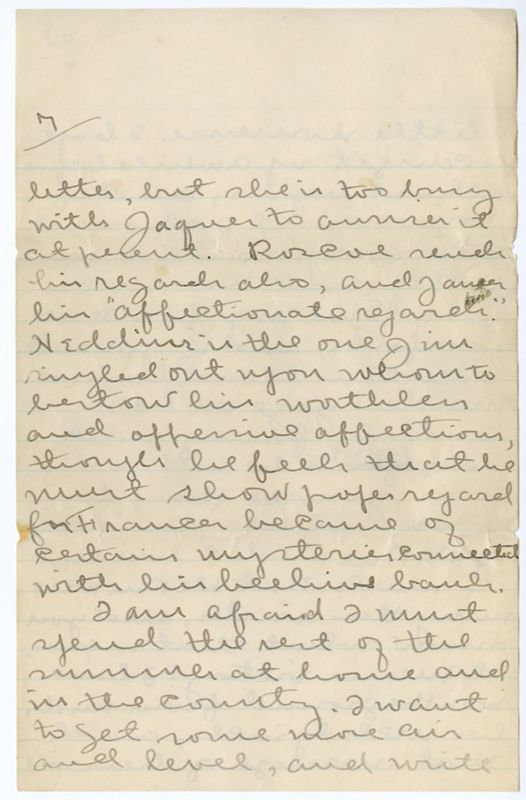 7
letter, but she is too busy
with Jaques to answer it
at present. Roscoe sends
his regards also, and James
his "affectionate regards."
Neddine is the one Jim
singled out upon whom to
bestow his worthless
and offensive affections,
though he feels that he
must show proper regard
for Frances because of
certain mysteries connected
with his beehive bank.
I am afraid I must
spend the rest of the
summer at home and
in the country. I want
to get some more air
and level, and write